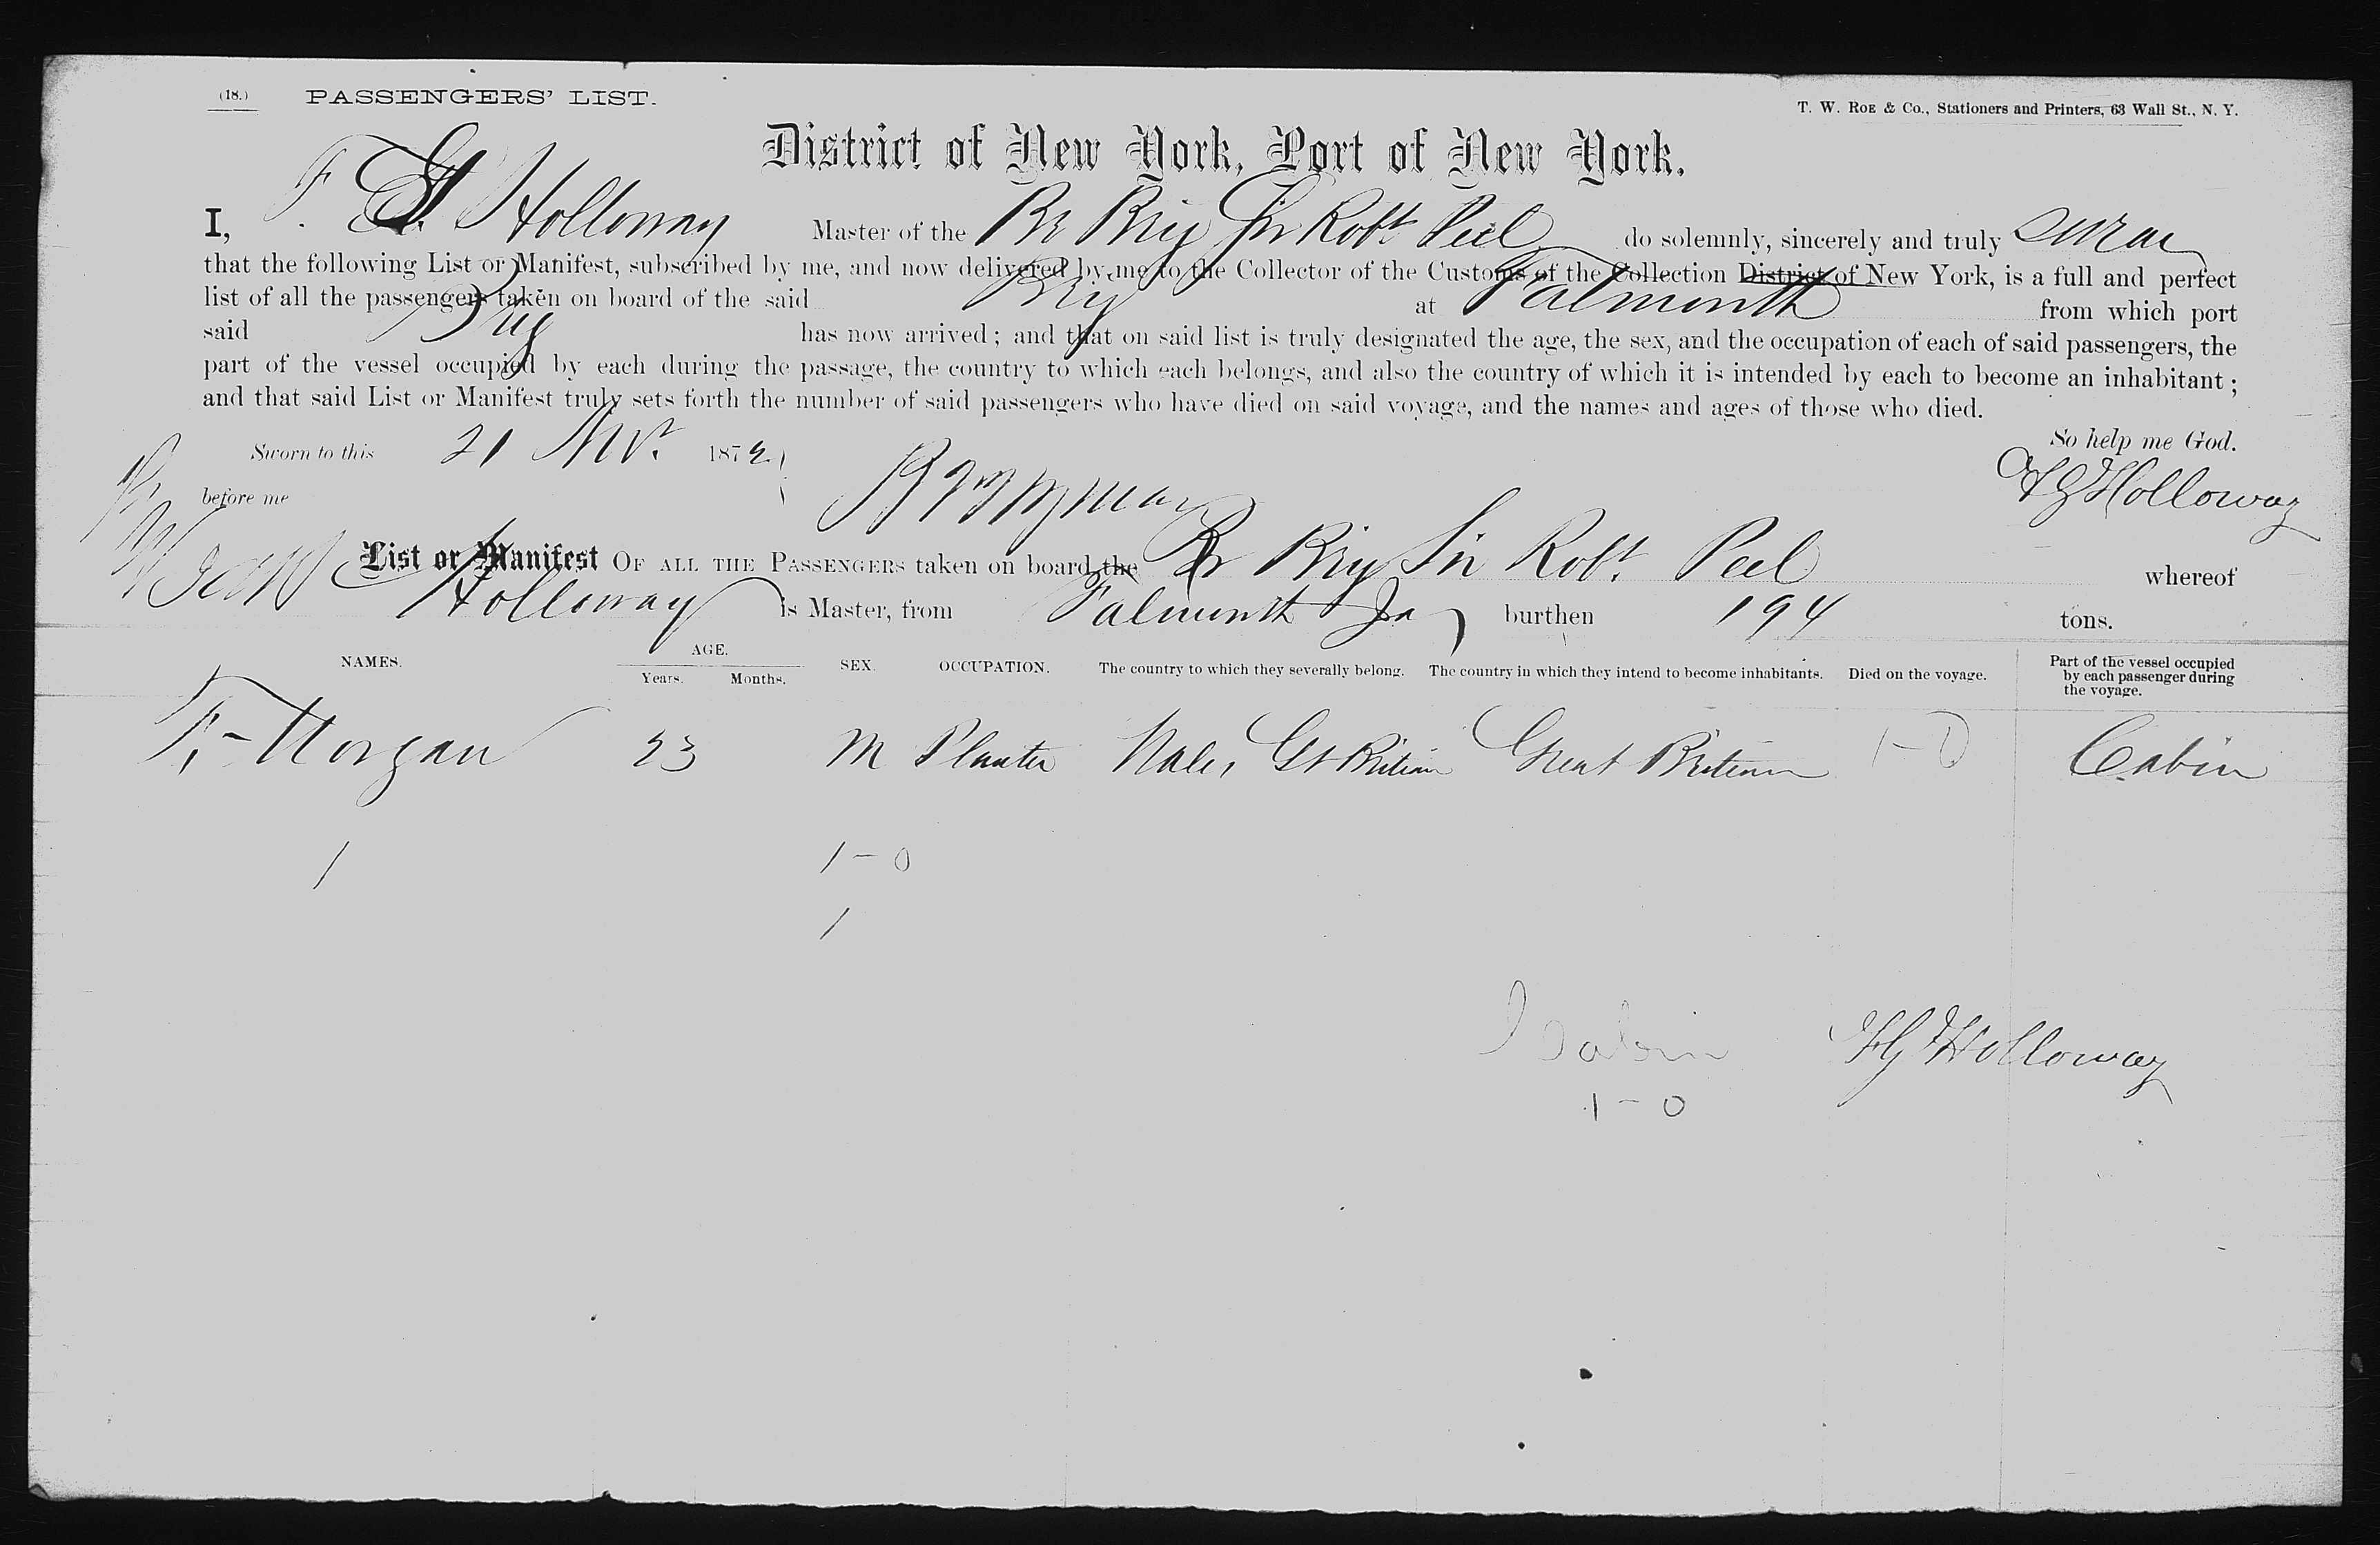 (18.) PASSENGERS' LIST.
T. W. ROE & Co., Stationers and Printers, 63 Wall St., N. Y.
District of New York, Port of New York.
I, F. G. Holloway Master of the Br Brig Sir Robt Peel do solemnly, sincerely and truly swear
that the following List or Manifest, subscribed by me, and now delivered by me to the Collector of the Customs of the Collection District of New York, is a full and perfect
list of all the passengers taken on board of the said Brig at Falmouth from which port
said Brig has now arrived; and that on said list is truly designated the age, the sex, and the occupation of each of said passengers, the
part of the vessel occupied by each during the passage, the country to which each belongs, and also the country of which it is intended by each to become an inhabitant;
and that said List or Manifest truly sets forth the number of said passengers who have died on said voyage, and the names and ages of those who died.
So help me God.
Sworn to this 21 Nov. 1872.
FG Holloway
before me
List or Manifest OF ALL THE PASSENGERS taken on board the Br Brig Sir Robt. Peel whereof
Holloway is Master, from Falmouth Ja burthen 194 tons.
NAMES. AGE. Years. Months. SEX. OCCUPATION. The country to which they severally belong. The country in which they intend to become inhabitants. Died on the voyage. Part of the vessel occupied by each passenger during the voyage.
T. Morgan 23 M Planter Wales, Gt Britian Great Britian 1-0 Cabin
1 1-0
1
Cabin FG Holloway
1-0